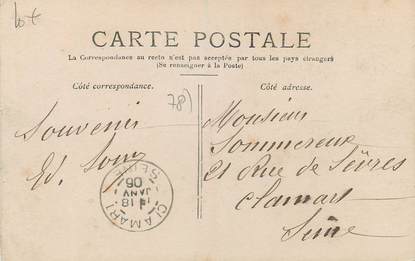 CARTE POSTALE
La Correspondance au recto n'est pas acceptée par tous les pays étrangers
(Se renseigner à la Poste)
Côté correspondance.
Côté adresse.
78)
Souvenir
Ed.
Monsieur
Sommereux
21 Rue de Sèvres
Clamart
Seine
CLAMART
18
JANV
06
SEINE